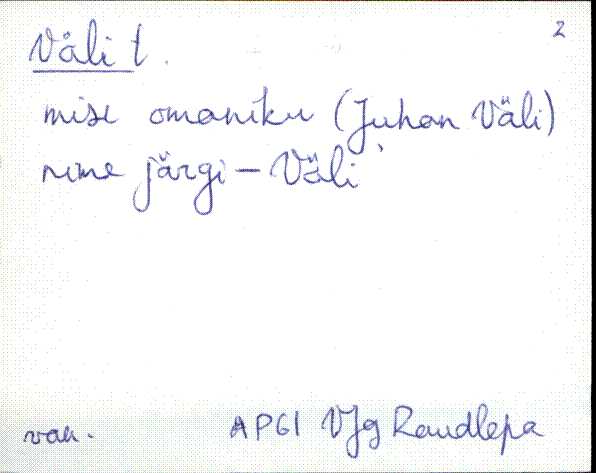 2
Väli t.
mise omaniku (Juhan Väli)
nime järgi – Väli
van. AP61 VJg Raudlepa